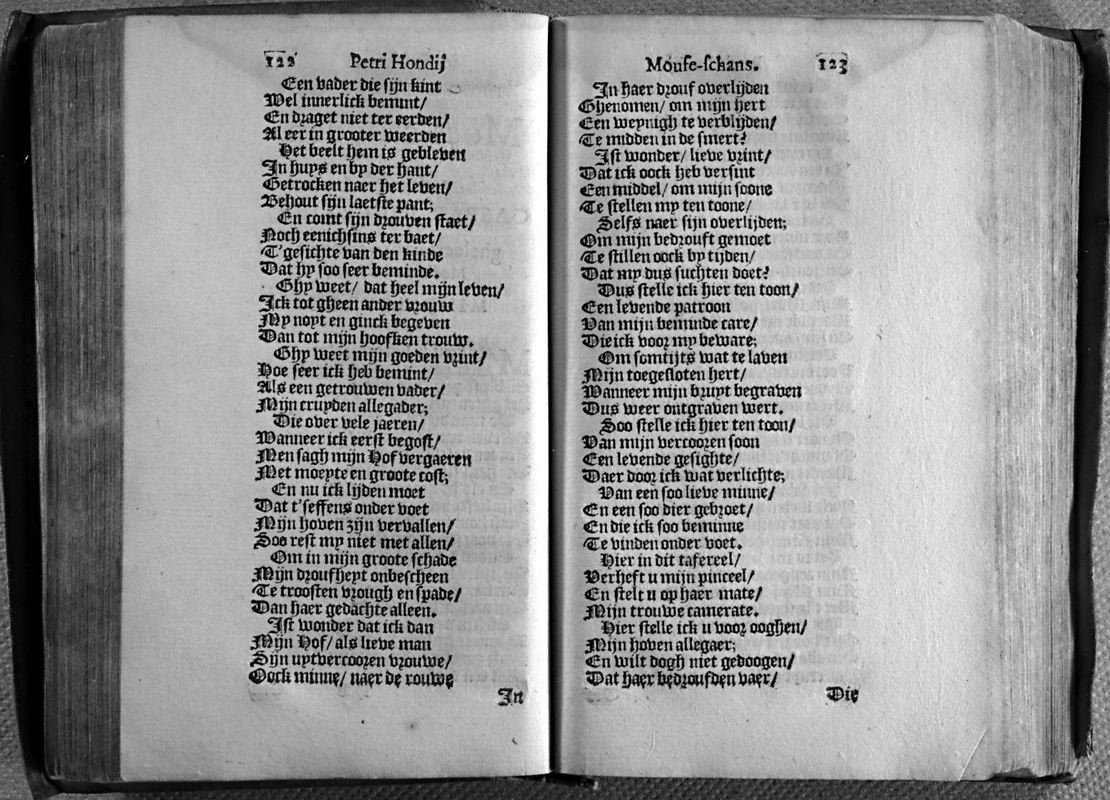 122 Petri Hondij
Een vader die sijn kint
Wel innerlick bemint/
En draget niet ter eerden/
Al eer in grooter weerden
Het beelt hem is gebleven
In huys en by der hant/
Getrocken naer het leven/
Behout sijn laetste pant;
En comt sijn drouven staet/
Noch eenichsins ter baet/
T'gesichte van den kinde
Dat hy soo seer beminde.
Ghy weet/ dat heel mijn leven/
Ick tot gheen ander vrouw
My noyt en ginck begeven
Dan tot mijn hoofken trouw.
Ghy weet mijn goeden vrint/
Hoe seer ick heb bemint/
Als een getrouwen vader/
Mijn cruyden allegader;
Die over vele jaeren/
Wanneer ick eerst begost/
Men sagh mijn Hof vergaeren
Met moeyte en groote cost;
En nu ick lijden moet
Dat t'seffens onder voet
Mijn hoven zijn vervallen/
Soo rest my niet met allen/
Om in mijn groote schade
Mijn droufheyt onbescheen
Te troosten vrough en spade/
Dan haer gedachte alleen.
Ist wonder dat ick dan
Mijn Hof/ als lieve man
Sijn uytvercooren vrouwe/
Oock minne/ naer de rouwe
In
Mouse-schans. 123
In haer drouf overlijden
Ghenomen/ om mijn hert
Een weynigh te verblijden/
Te midden in de smert?
Ist wonder/ lieve vrint/
Dat ick oock heb versint
Een middel/ om mijn soone
Te stellen my ten toone/
Selfs naer sijn overlijden;
Om mijn bedrouft gemoet
Te stillen oock by tijden/
Dat my dus suchten doet?
Dus stelle ick hier ten toon/
Een levende patroon
Van mijn beminde care/
Die ick voor my beware;
Om somtijts wat te laven
Mijn toegesloten hert/
Wanneer mijn bruyt begraven
Dus weer ontgraven wert.
Soo stelle ick hier ten toon/
Van mijn vercooren soon
Een levende gesighte/
Daer door ick wat verlichte;
Van een soo lieve minne/
En een soo dier gebroet/
En die ick soo beminne
Te vinden onder voet.
Hier in dit tafereel/
Verheft u mijn pinceel/
En stelt u op haer mate/
Mijn trouwe camerate.
Hier stelle ick u voor ooghen/
Mijn hoven allegaer;
En wilt dogh niet gedoogen/
Dat haer bedroufden vaer/
Die